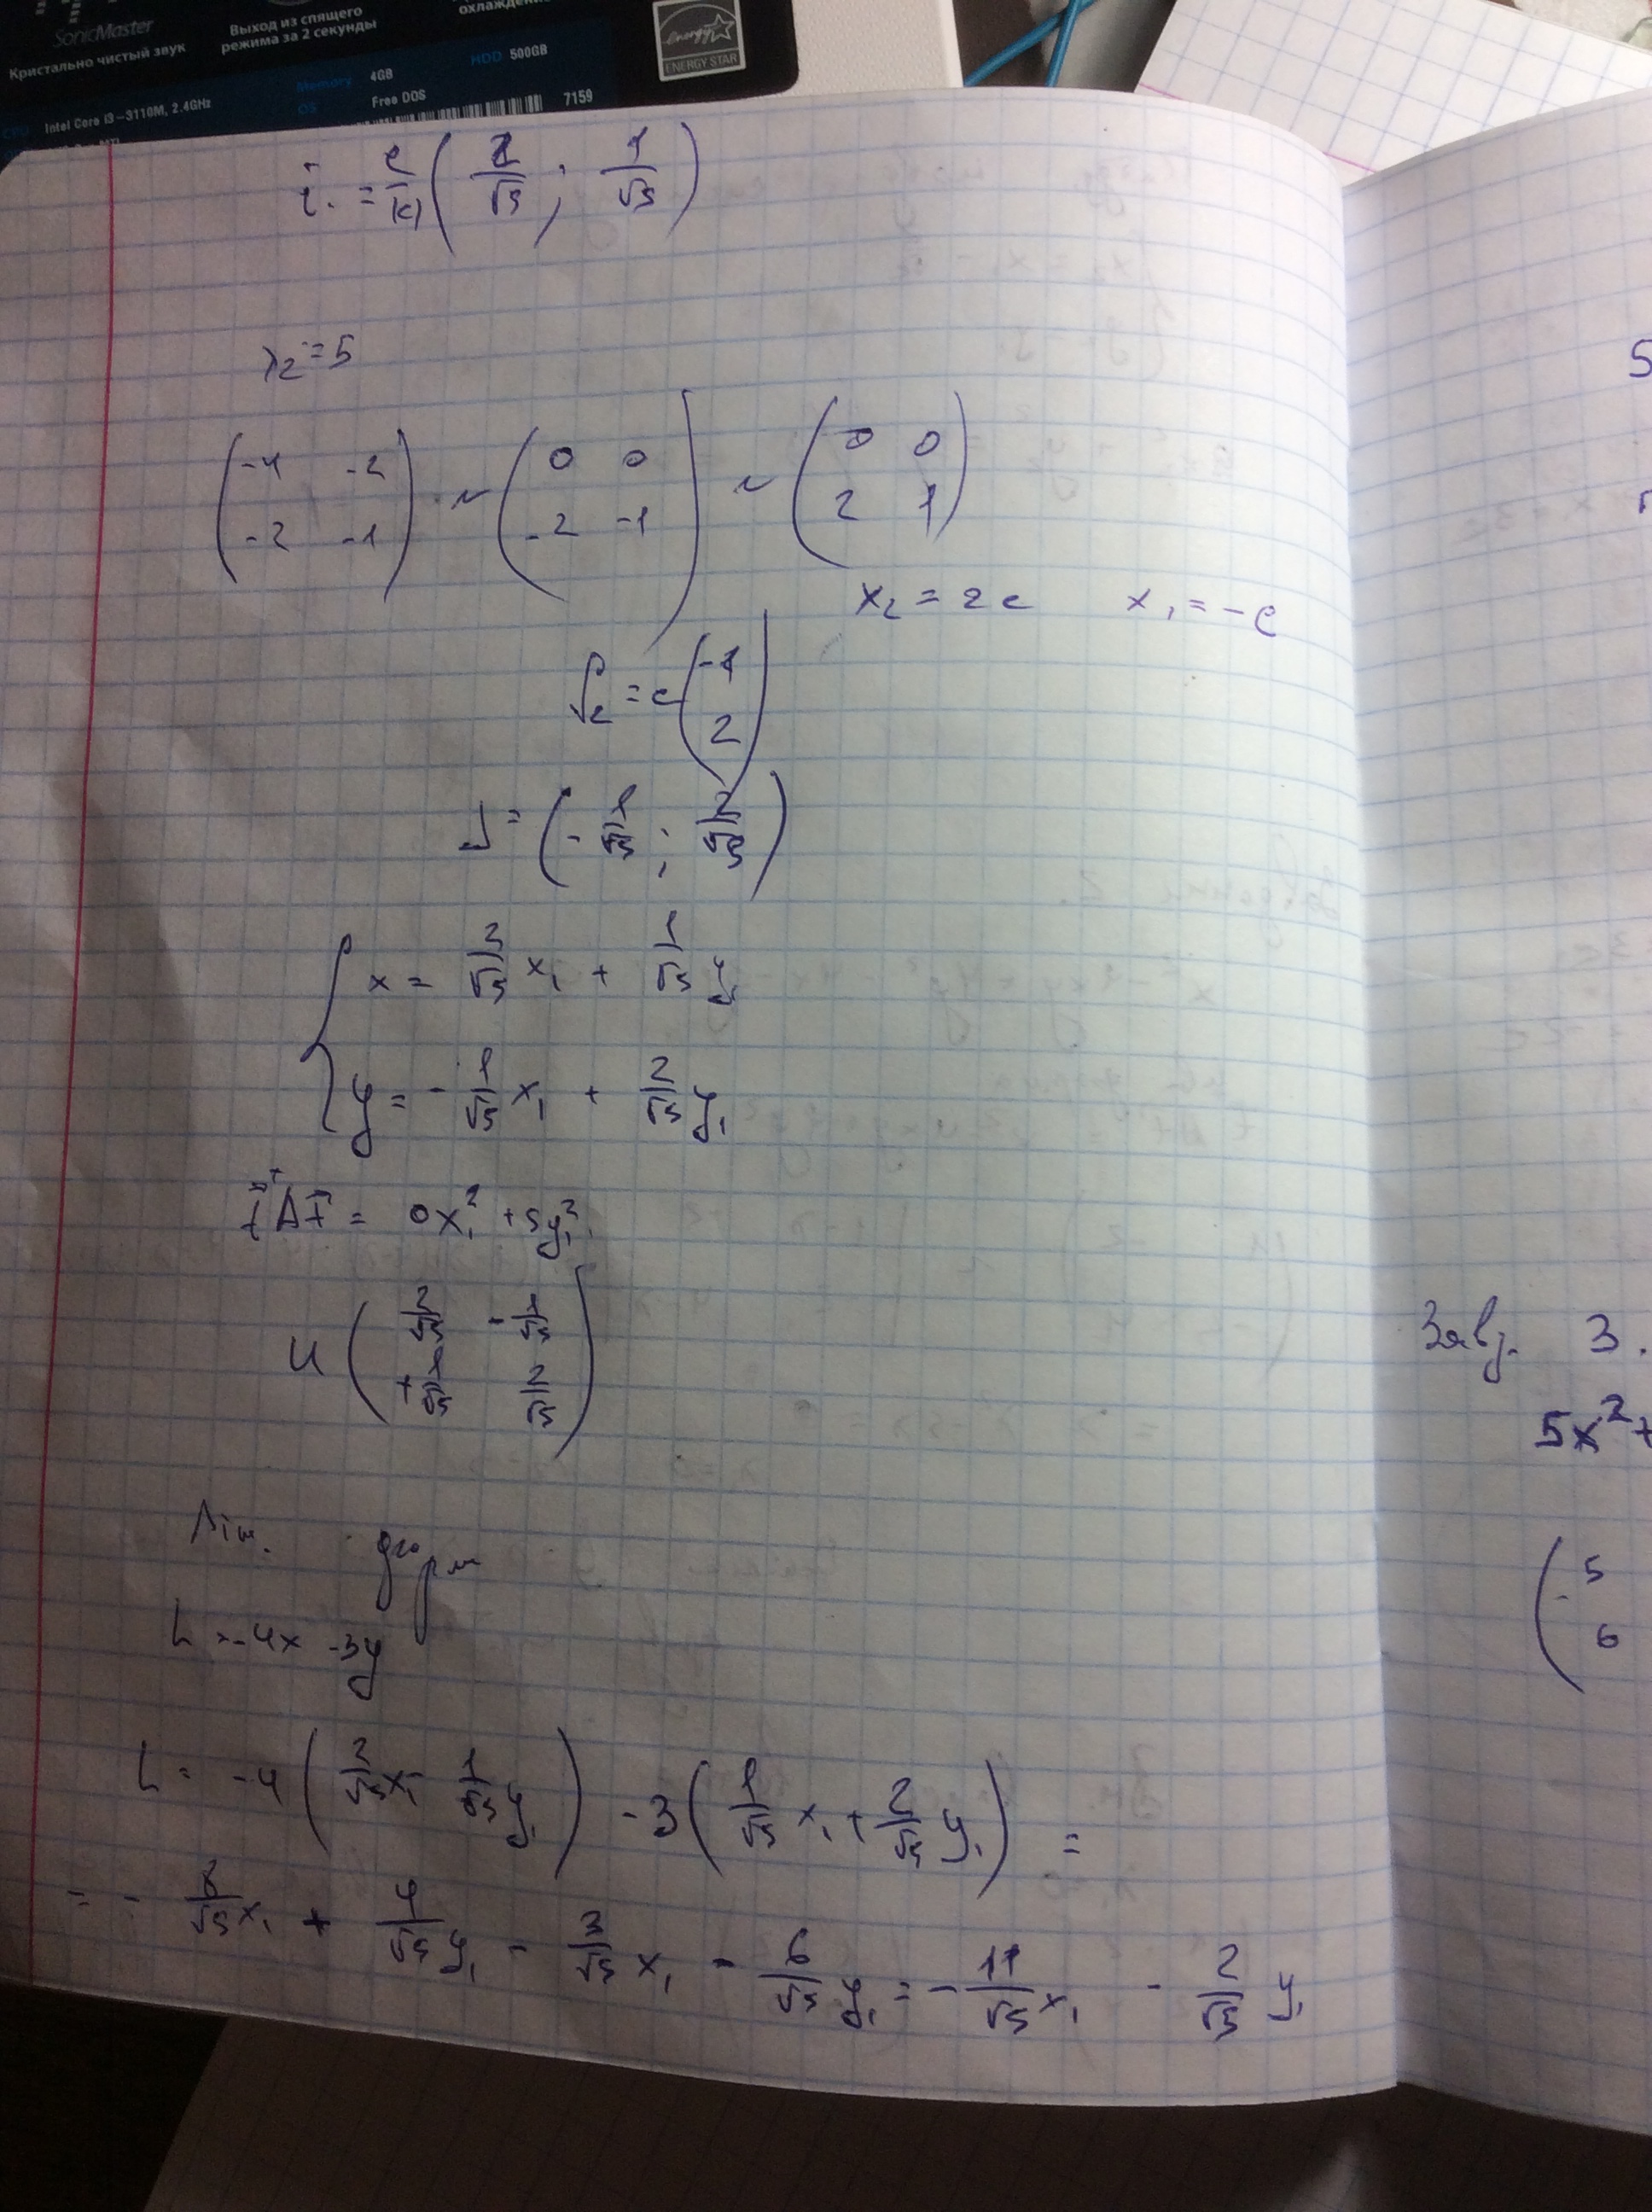 SonicMaster
Кристально чистый звук
Выход из спящего
режима за 2 секунды
Memory 4GB
HDD 500GB
OS Free DOS
CPU Intel Core i3-3110M, 2.4GHz
7159
energy
ENERGY STAR
i = c/|c| (2/√5 ; 1/√5)
λ₂ = 5
(-4 -2 ; -2 -1) ~ (0 0 ; -2 -1) ~ (0 0 ; 2 1)
x₂ = 2c x₁ = -c
= c (-1 ; 2)
J = (-1/√5 ; 2/√5)
x = 2/√5 x₁ + 1/√5 y₁
y = -1/√5 x₁ + 2/√5 y₁
= 0x₁² + 5y₁²
U (2/√5 -1/√5 ; +1/√5 2/√5)
Лін. форм
L = -4x -3y
L = -4(2/√5 x₁ - 1/√5 y₁) -3(1/√5 x₁ + 2/√5 y₁) =
= -8/√5 x₁ + 4/√5 y₁ - 3/√5 x₁ - 6/√5 y₁ = -11/√5 x₁ - 2/√5 y₁
5
Завд. 3.
5x² +
(5
6